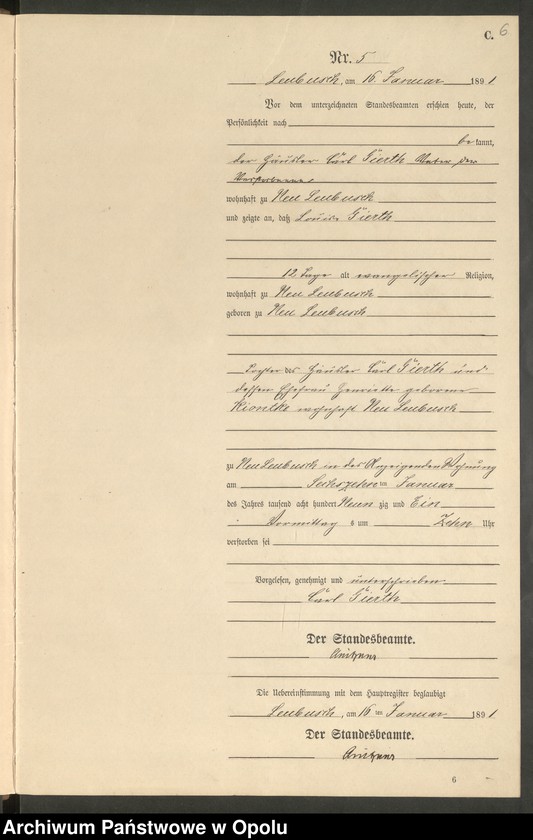 C. 6
Nr. 5
Leubusch, am 16. Januar 1891
Vor dem unterzeichneten Standesbeamten erschien heute, der
Persönlichkeit nach
bekannt,
der Häusler Carl Gierth Vater der
Verstorbenen
wohnhaft zu Neu Leubusch
und zeigte an, daß Louise Gierth
12 Tage alt evangelischer Religion,
wohnhaft zu Neu Leubusch
geboren zu Neu Leubusch
Tochter des Häusler Carl Gierth und
dessen Ehefrau Henriette geborene
wohnhaft Neu Leubusch
zu Neu Leubusch in des Anzeigenden Wohnung
am Sechszehnten Januar
des Jahres tausend acht hundert Neunzig und Ein
Vormittags um Zehn Uhr
verstorben sei
Vorgelesen, genehmigt und unterschrieben
Carl Gierth
Der Standesbeamte.
Die Uebereinstimmung mit dem Hauptregister beglaubigt
Leubusch, am 16ten Januar 1891
Der Standesbeamte.
6
Archiwum Państwowe w Opolu